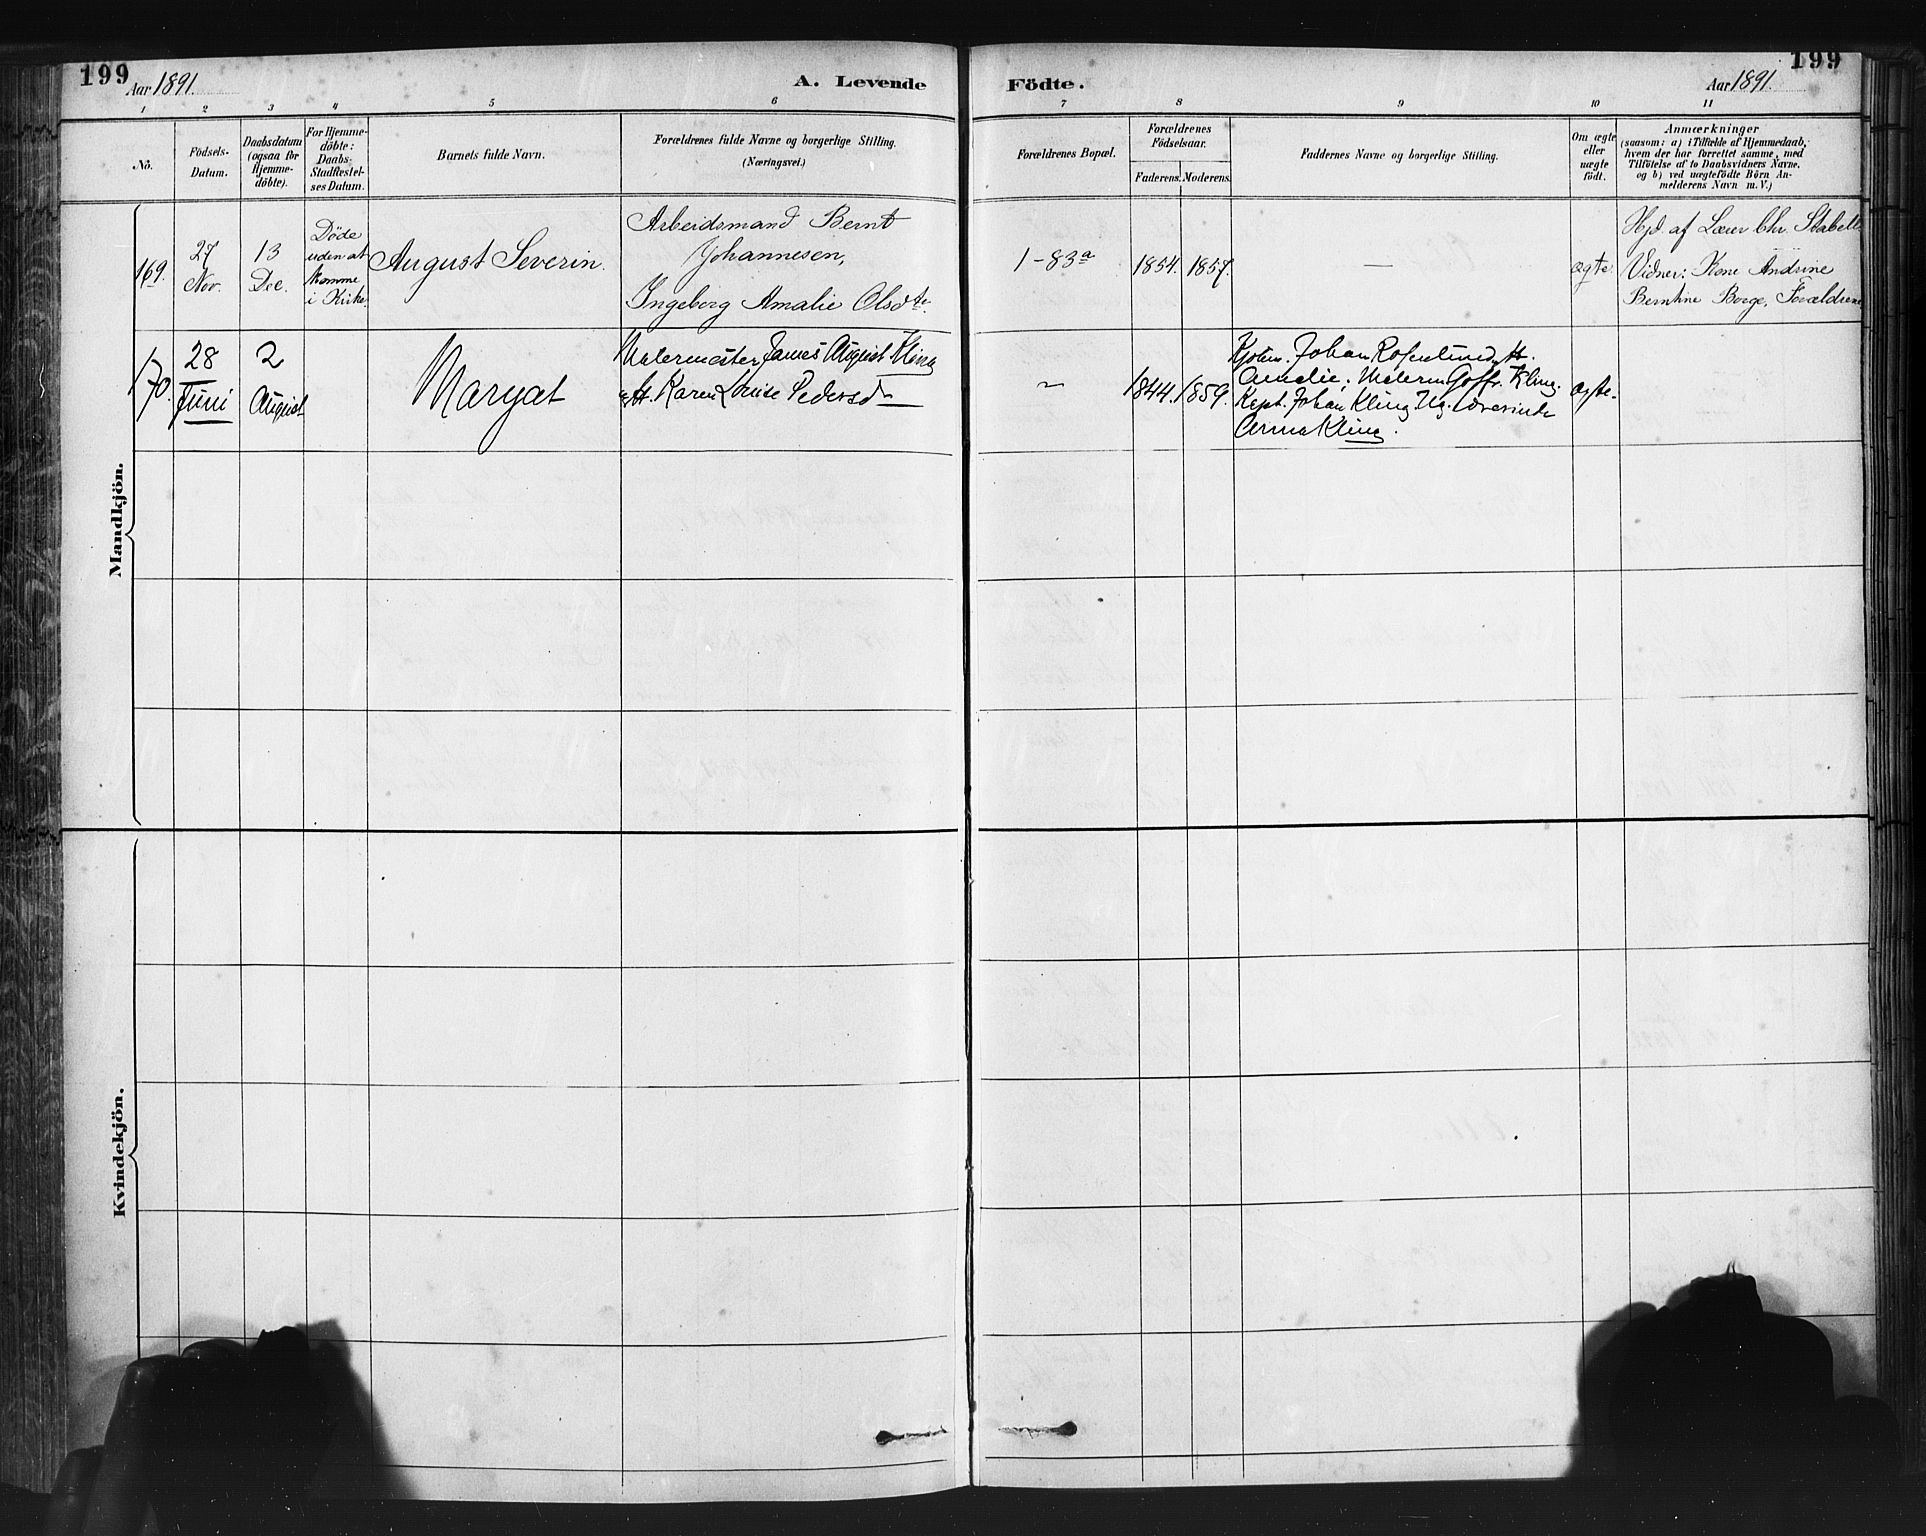 199
Aar 1891.
A. Levende
Födte.
Aar 1891.
199
1 2 3 4 5 6 7 8 9 10 11
No.
Födsels-
Datum.
Daabsdatum
(ogsaa for
Hjemme-
döbte).
For Hjemme-
döbte:
Daabs-
Stadfæstel-
ses Datum.
Barnets fulde Navn.
Forældrenes fulde Navne og borgerlige Stilling.
(Næringsvei.)
Forældrenes Bopæl.
Forældrenes
Födselsaar.
Faderens. Moderens.
Faddernes Navne og borgerlige Stilling.
Om ægte
eller
uægte
födt.
Anmærkninger
(saasom: a) i Tilfælde af Hjemmedaab,
hvem der har forrettet samme, med
Tilföielse af to Daabsvidners Navne.
og b) ved uægtefödte Börn An-
melderens Navn m. V.)
Mandkjön.
169.
27
Nov.
13
Dec.
Døde
uden at
komme
i Kirke
August Severin.
Arbeidsmand Bernt
Johannesen,
Ingeborg Amalie Olsdtr.
1-83a
1854. 1857.
—
ægte.
Hjd. af Lærer Chr. Stabell
Vidner: Kone Andrine
Berntine Borge, Forældrene
170.
28
Juni
2
August
Maryat
Malermester James August Kling
og H. Karen Louise Pedersd
~
1844. 1859.
Kjøbm. Johan Rosenlund, H.
Amalie; Malerm Gotfr. Kling.
Kapt. Johan Kling. Ug. Lærerinde
Anna Kling.
ægte.
Kvindekjön.